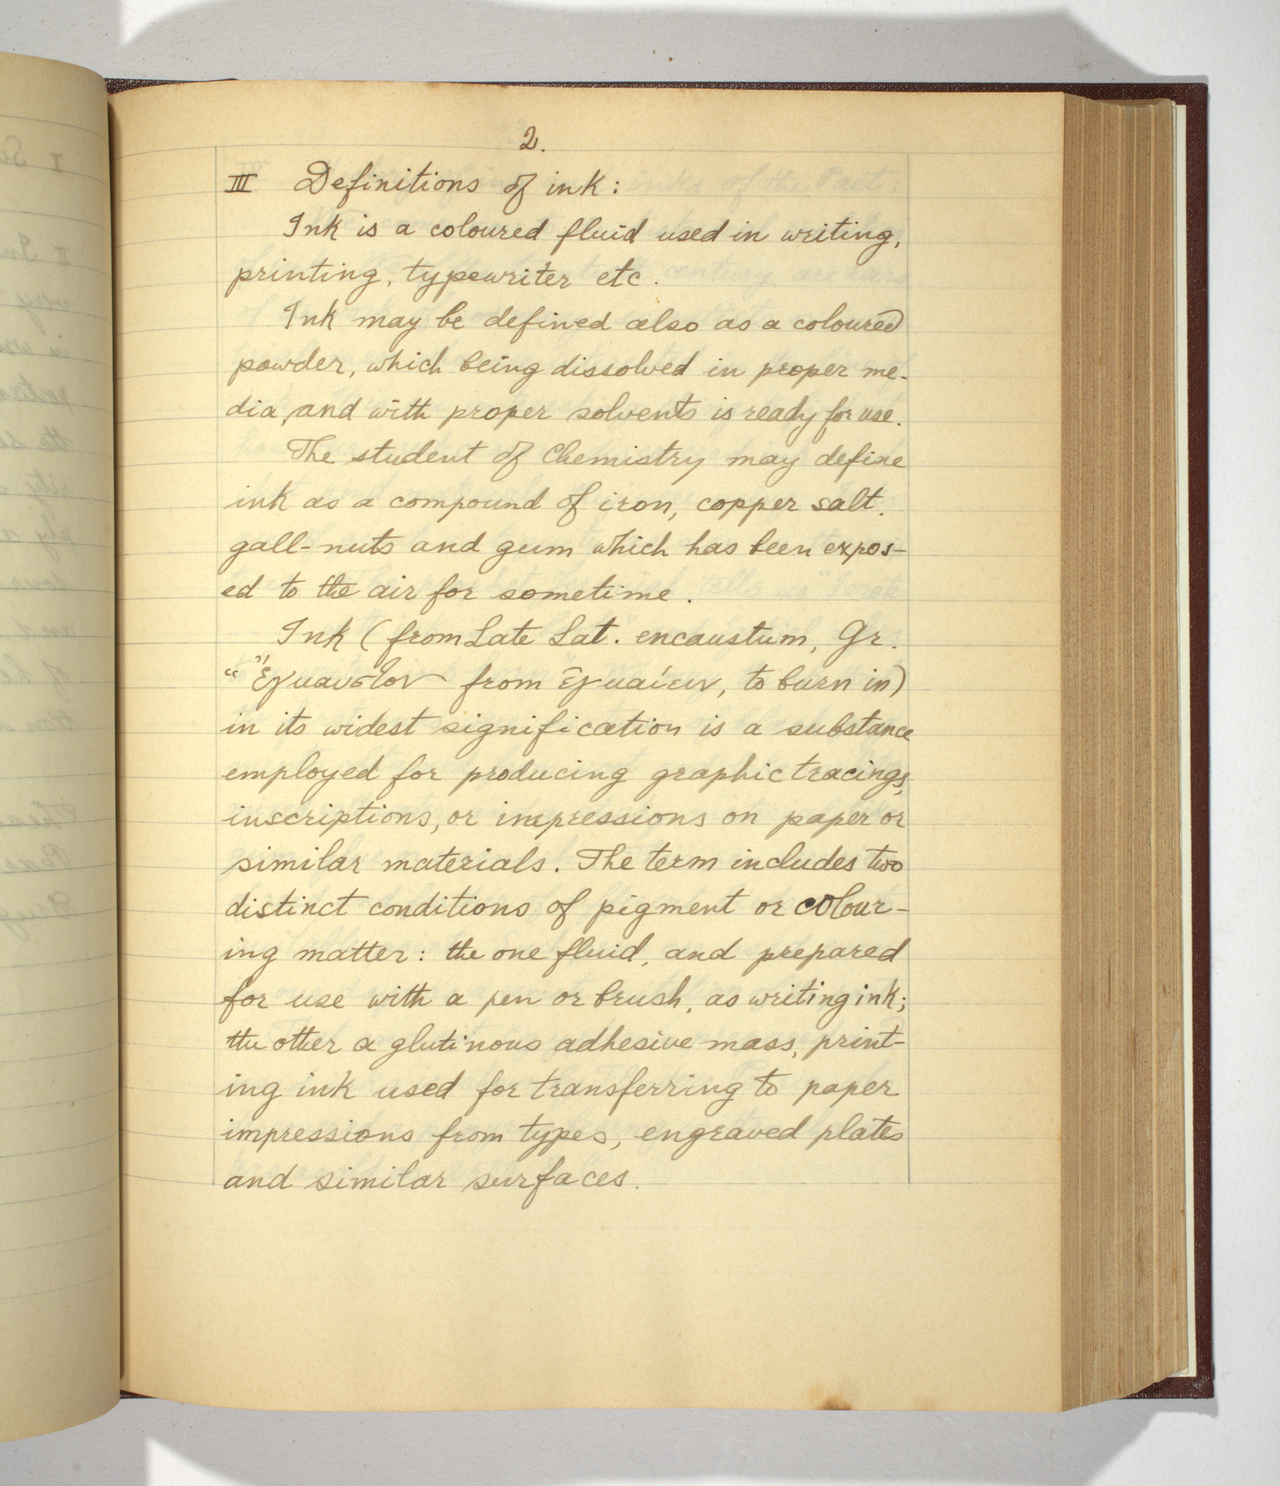 2.
III Definitions of ink:
Ink is a coloured fluid used in writing,
printing, typewriter etc.
Ink may be defined also as a coloured
powder, which being dissolved in proper me-
dia, and with proper solvents is ready for use.
The student of Chemistry may define
ink as a compound of iron, copper salt.
gall-nuts and gum which has been expos-
ed to the air for sometime.
Ink (from Late Lat. encaustum, Gr.
from to burn in)
in its widest signification is a substance
employed for producing graphic tracings,
inscriptions, or impressions on paper or
similar materials. The term includes two
distinct conditions of pigment or colour-
ing matter: the one fluid, and prepared
for use with a pen or brush, as writing ink;
the other a glutinous adhesive mass, print-
ing ink used for transferring to paper
impressions from types, engraved plates
and similar surfaces.